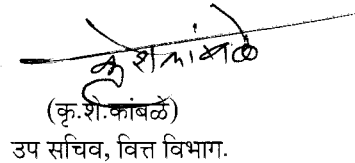 कृ शे कांबळे
(कृ.शे.कांबळे)
उप सचिव, वित्त विभाग.